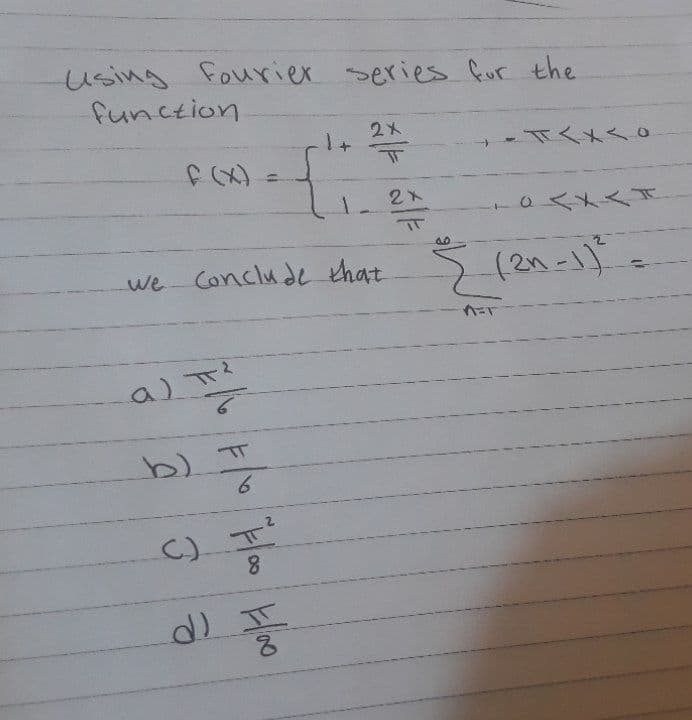 using Fourier series for the
function
f(x) = { 1+ 2x/π , -π<x<0
1- 2x/π , 0<x<π
we conclude that ∞∑n=1 (2n-1)² =
a) π²/6
b) π/6
c) π²/8
d) π/8